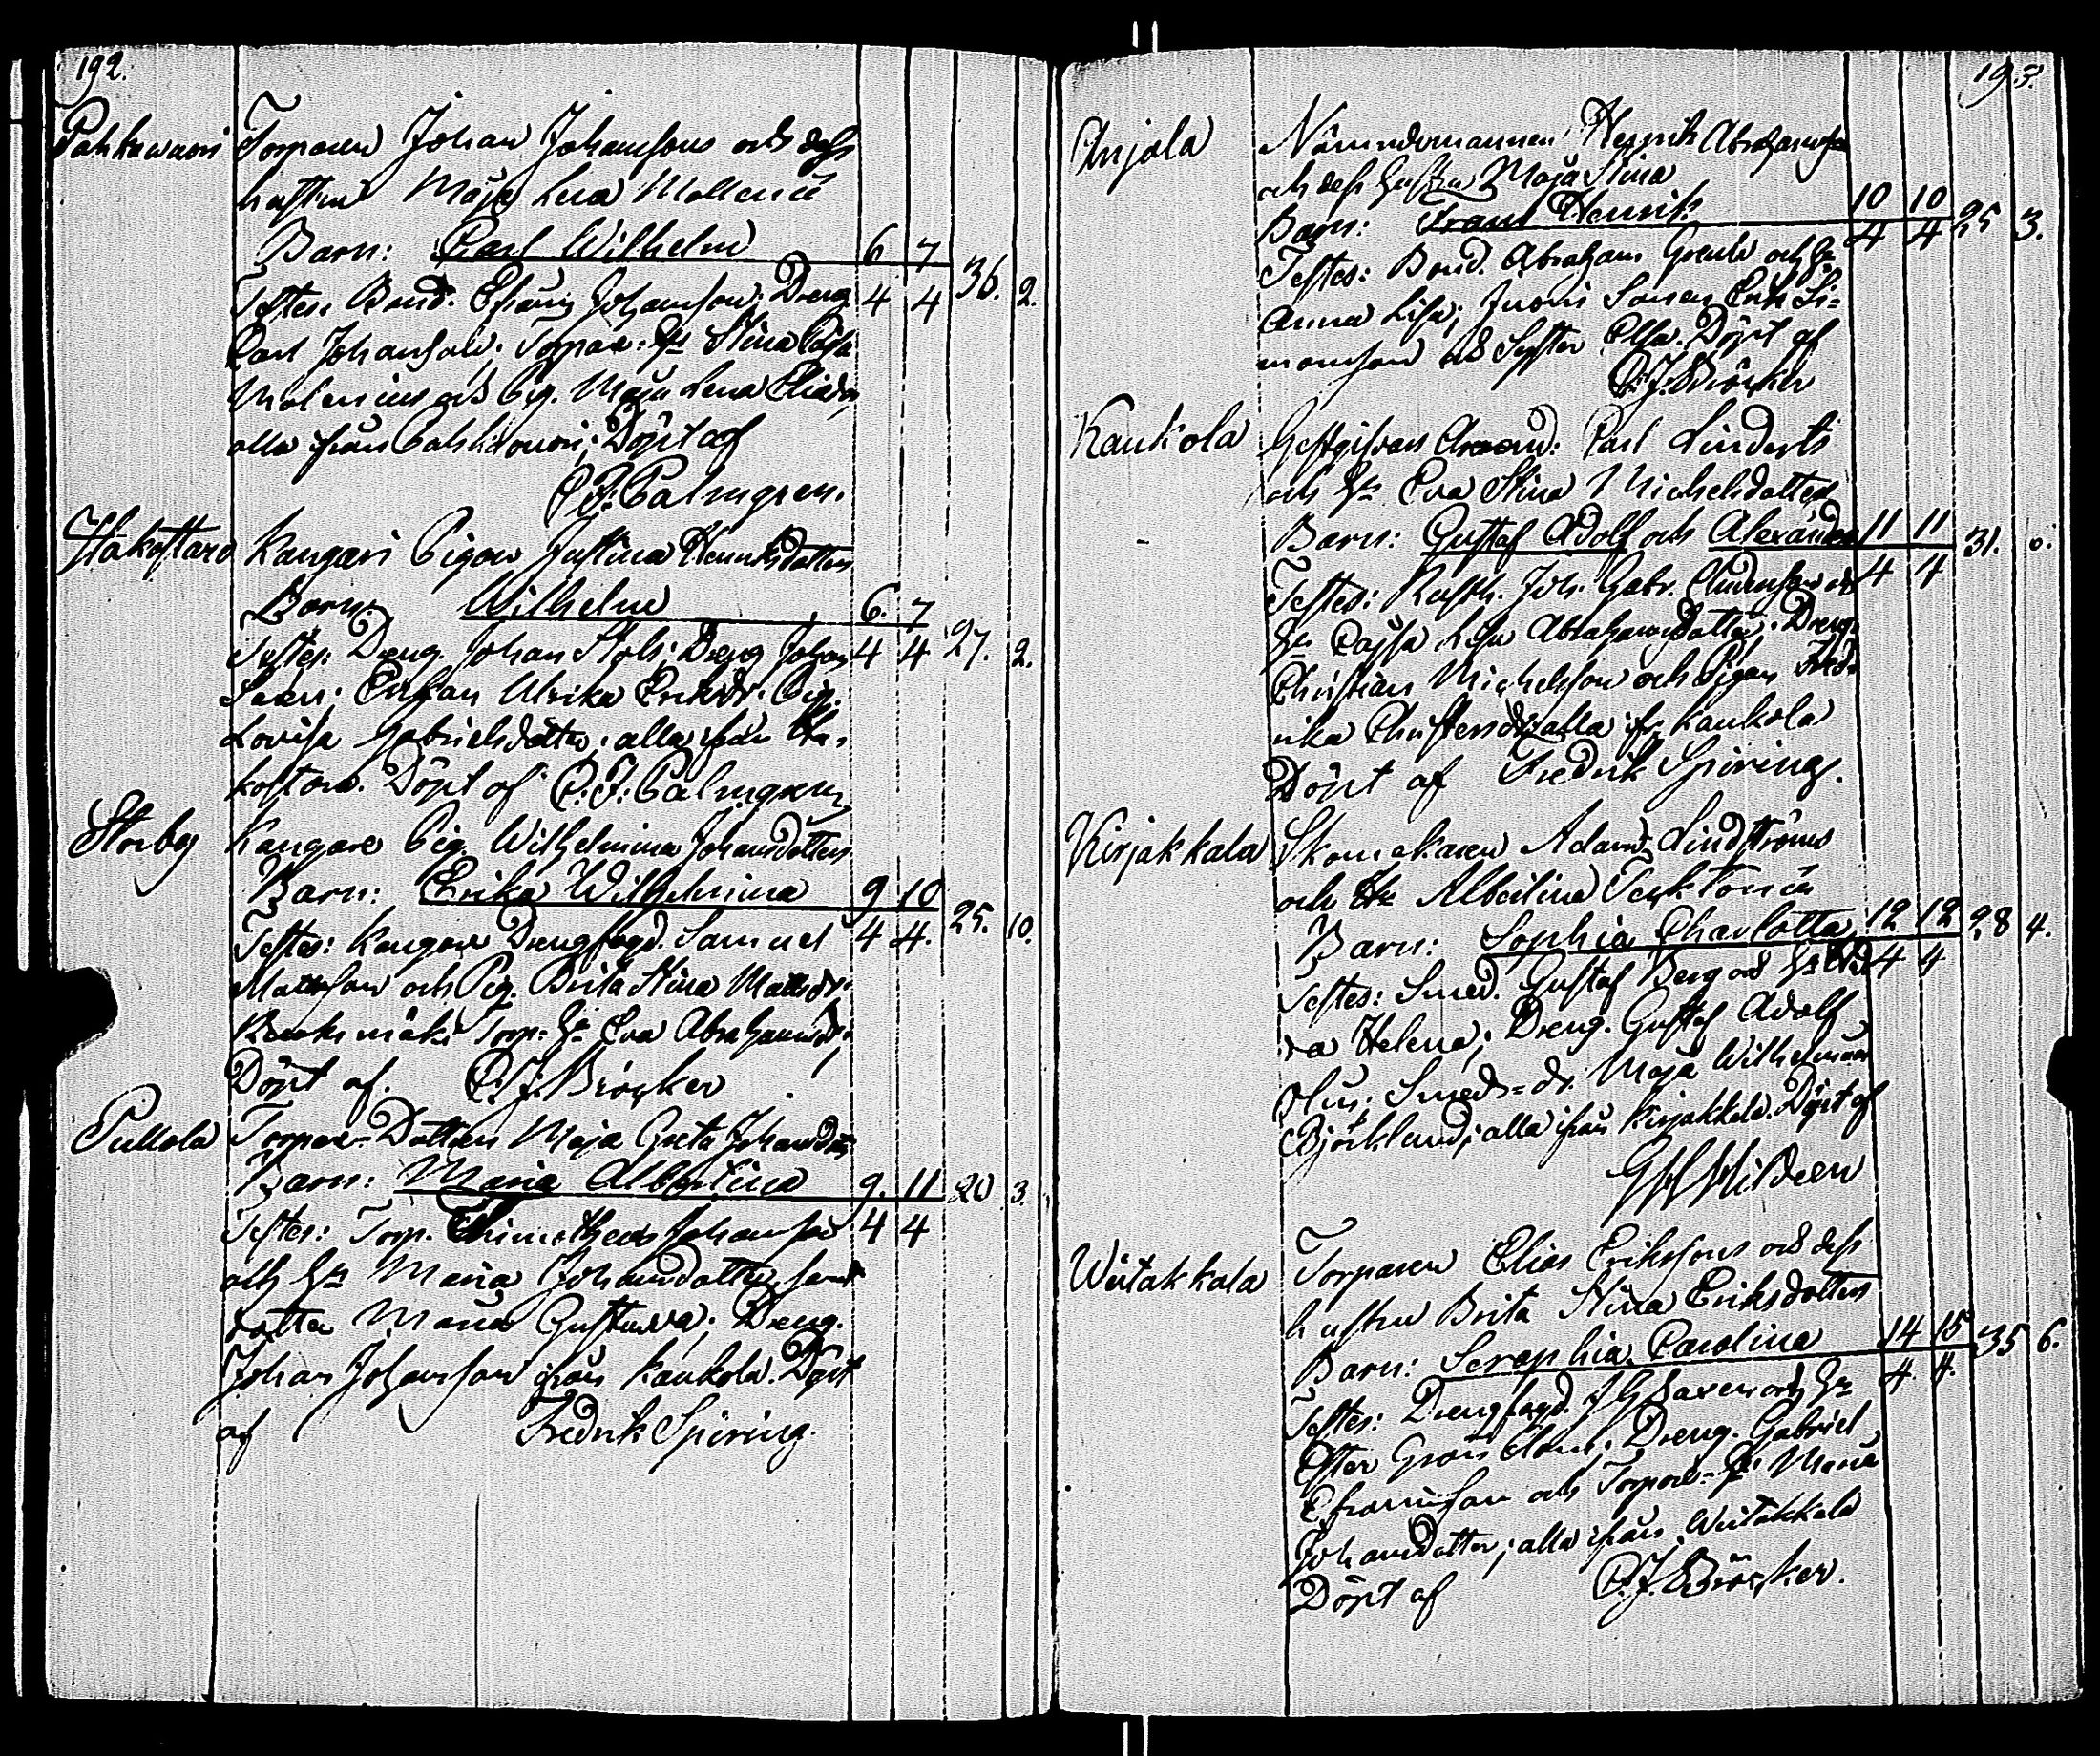 192.
Torparen Johan Johanssons och dess
hustrus Maja Lena
Barn: Carl Wilhelm 6/4 7/4 36. 2.
Testes: Bond. Johansson; Dreng
Carl Johansson; Torpare: Hu Stina Cajsa
och Pig. Maja Lena
alla ifrån Döpt af
C. J. Palmgren.
Håkostaro Kangari Pigan Justina Henriksdotters
Barn: Wilhelm 6./4 7/4 27. 2.
Testes: Dreng. Johan Dreng Johan
Ulrika Eriksdr. Pig.
Lovisa Gabrielsdotter; alla ifrån Hå-
kostaro. Döpt af C. J. Palmgren
Storby Kangare Pig. Wilhelmina Johansdotters
Barn: Erika Wilhelmina 9/4 10/4. 25. 10.
Testes: Kangare Drengfogd. Samuel
Mattsson och Pig. Brita Stina Mattsdr.
Torp: Hu Eva Abrahamsdr.
Döpt af. C. J. Bröcker
Pullola Torpare-Dottren Maja Greta Johansdotters
Barn: Maria Albertina 9./4 11/4 20 3.
Testes: Torp. Thimotheus Johansson
och Hu Maria Johansdotter, samt
dotter Maria Gustava; Dreng.
Johan Johansson ifrån Kaukola. Döpt
af Fredrik Spiring.
193.
Anjala Nämndemannen Henrik Abrahamsson
och dess hustru Maja Stina
Barn: Frans Henrik 10/4 10/4 25 3.
Testes: Bond. Abraham och Hu
Anna Lisa; Sonen Erik Si-
monsson och Syster Ulla. Döpt af
C. J. Bröcker
Kaukola Gästgifvare Carl Linderts
och Hu Eva Stina Michelsdotters
Barn: Gustaf Adolf och Alexander 11/4 11/4 31. 0.
Testes: Rusth. Joh. Gabr. och
Hu Cajsa Lisa Abrahamsdotter; Dreng.
Christian Michelsson och Pigan Fred-
rika Christersdr; alla fr. Kaukola
Döpt af Fredrik Spiring.
Kirjakkala Skomakaren Adam Lindströms
och Hu Albertina
Barn: Sophia Charlotta 12/4 12/4 28 4.
Testes: Smed. Gustaf Berg och Hu
Helena; Dreng. Gustaf Adolf
Smeds-dr. Maja Wilhelmina
Björklund; alla ifrån Kirjakkala. Döpt af
Wiitakkala Torparen Elias Erikssons och dess
hustru Brita Stina Eriksdotters
Barn: Seraphia Carolina 14/4 15/4. 35 6.
Testes: Drengfogd. och Hu
Ester Dreng. Gabriel
Efraimsson och Torpare-Hu Maria
Johansdotter; alla ifrån Wiitakkala
Döpt af C. J. Bröcker.